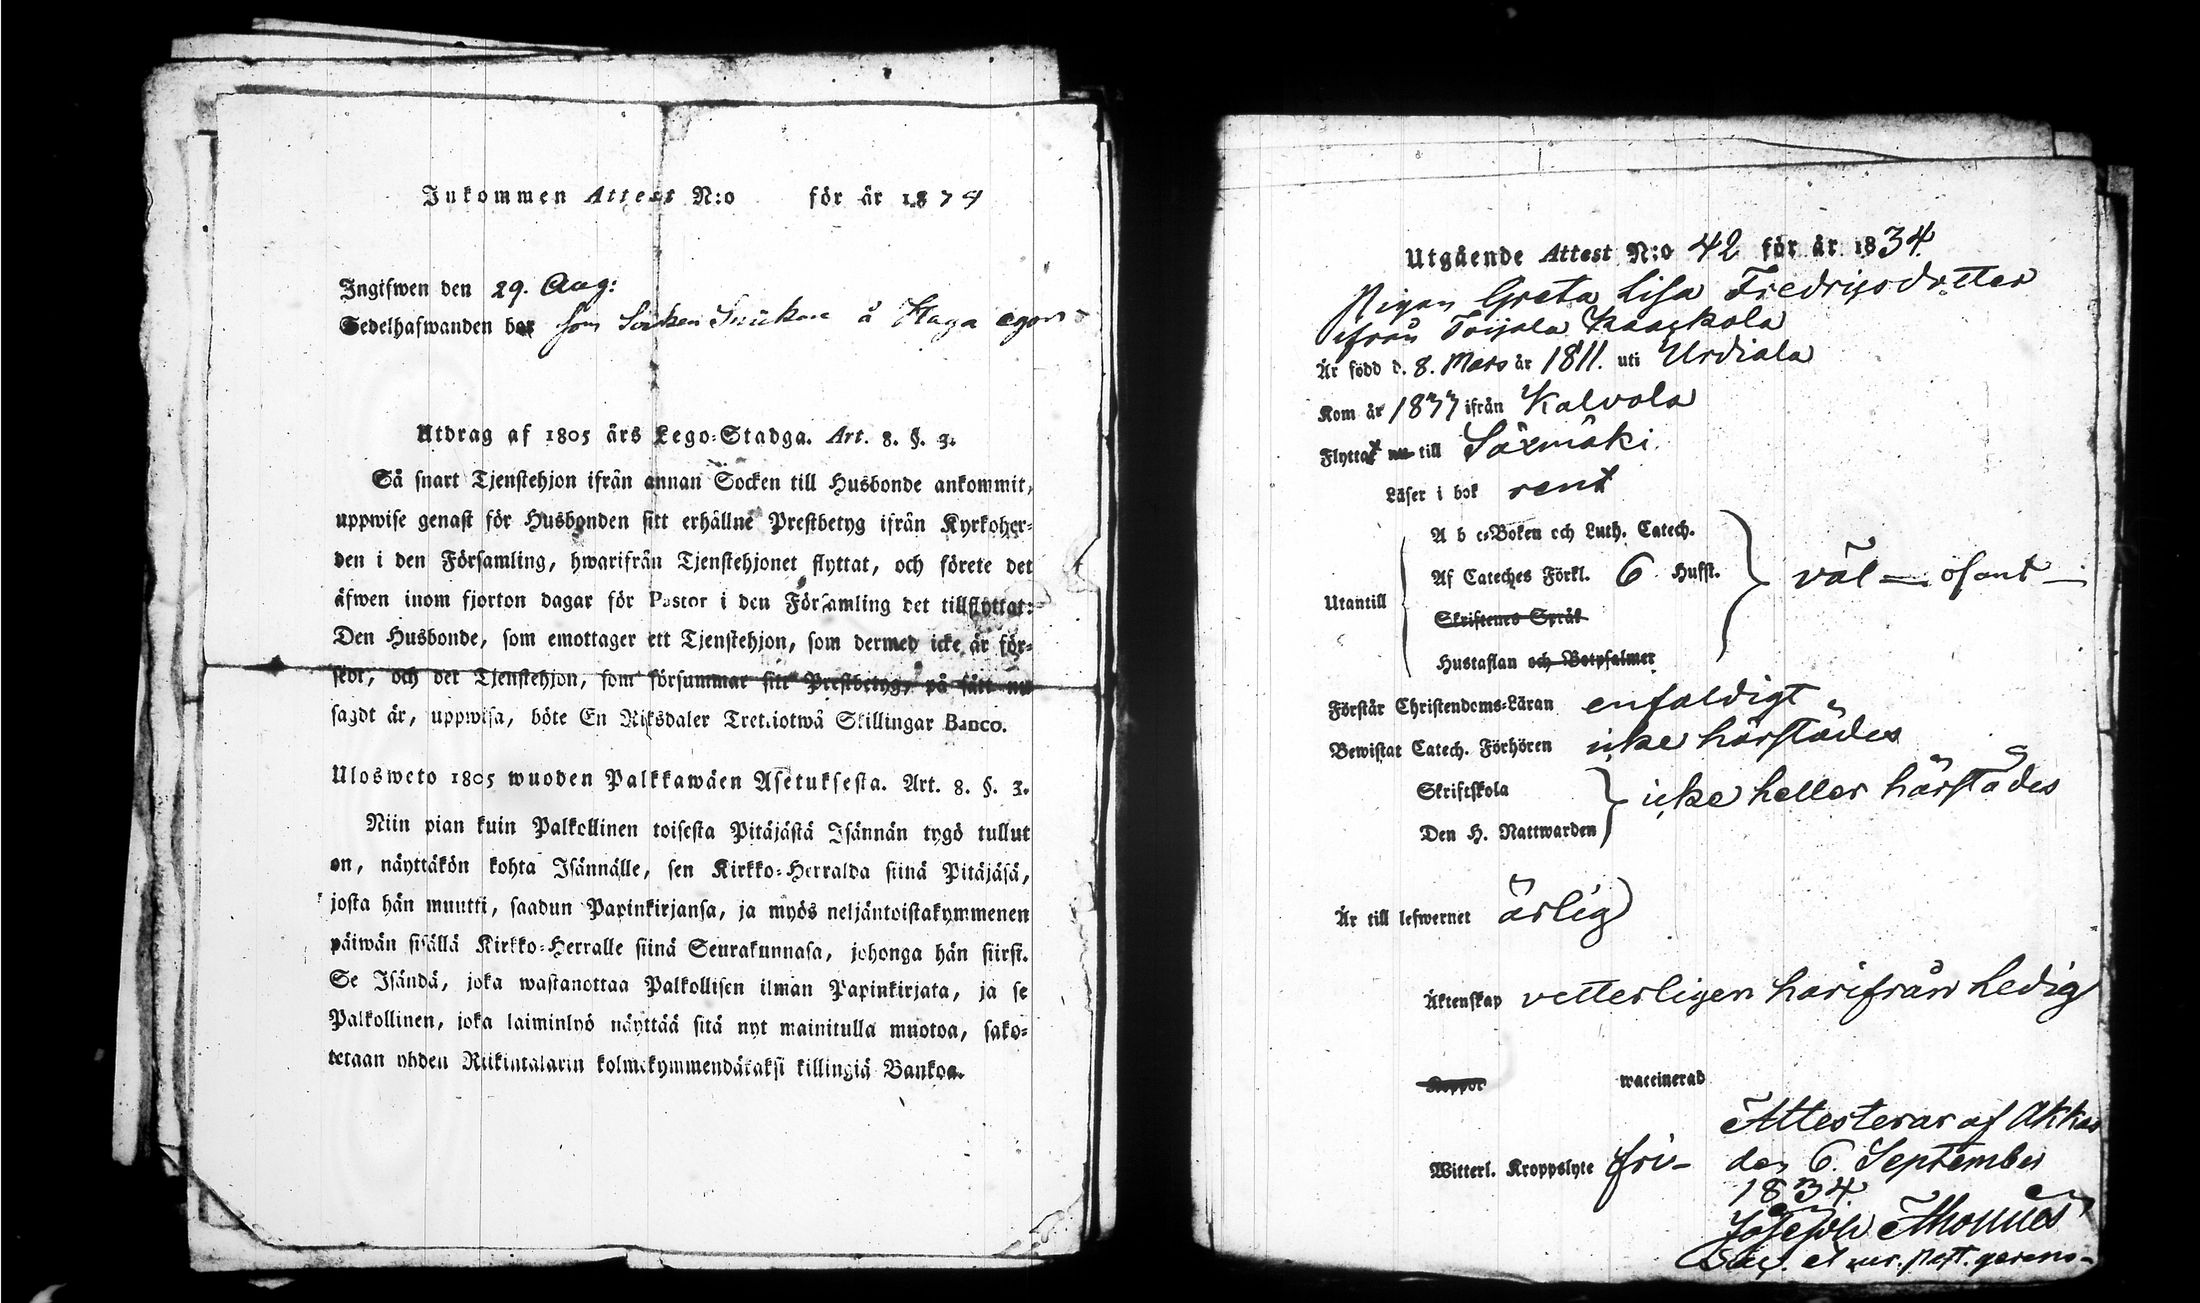 Inkommen Attest N:o för år 1874
Ingifwen den 29. Aug:
Sedelhafwanden bor som Socken å Haga egor
Utdrag af 1805 års Lego-Stadga. Art. 8. §. 3.
Så snart Tjenstehjon ifrån annan Socken till Husbonde ankommit,
uppwise genast för Husbonden sitt erhållne Prestbetyg ifrån Kyrkoher-
den i den Församling, hwarifrån Tjenstehjonet flyttat, och förete det
äfwen inom fjorton dagar för Pastor i den Församling det tillflyttat:
Den Husbonde, som emottager ett Tjenstehjon, som dermed icke är för-
sedt, och det Tjenstehjon, som försummar sitt Prestbetyg, på sätt nu
sagdt är, uppwisa, böte En Riksdaler Trettiotwå Skillingar Banco.
Ulosweto 1805 wuoden Palkkawäen Asetuksesta. Art. 8. §. 3.
Niin pian kuin Palkollinen toisesta Pitäjästä Isännän tygö tullut
on, näyttäkön kohta Isännälle, sen Kirkko-Herralda siinä Pitäjäsä,
josta hän muutti, saadun Papinkirjansa, ja myös neljäntoistakymmenen
päiwän sisällä Kirkko-Herralle siinä Seurakunnasa, johonga hän siirsi.
Se Isändä, joka wastanottaa Palkollisen ilman Papinkirjata, ja se
Palkollinen, joka laiminlyö näyttää sitä nyt mainitulla muotoa, sako-
tetaan yhden Riikintalarin kolmekymmendäkaksi killingiä Bankoa.
Utgående Attest N:o 42 för år 1834.
Pigan Greta Lisa Fredrigsdotter
ifrån Toijola Kaaskola
Är född d. 8. Mars år 1811. uti Urdiala
Kom år 1833 ifrån Kalvola
Flyttat nu till Säxmäki.
Läser i bok rent
A b c-Boken och Luth. Catech.
Af Cateches Förkl. 6 Hufst.
väl — osant —
Utantill
Skriftenes Språk
Hustaflan och Botpsalmer
Förstår Christendoms-Läran enfaldigt
Bewistat Catech. Förhören icke härstädes
Skriftskola
icke heller härstädes
Den H. Nattwarden
Är till lefwernet ärlig
Äktenskap vetterligen härifrån Ledig
Koppor waccinerad
Attesteras af Akkas
Witterl. Kroppslyte fri- den 6. September
1834.
Joseph